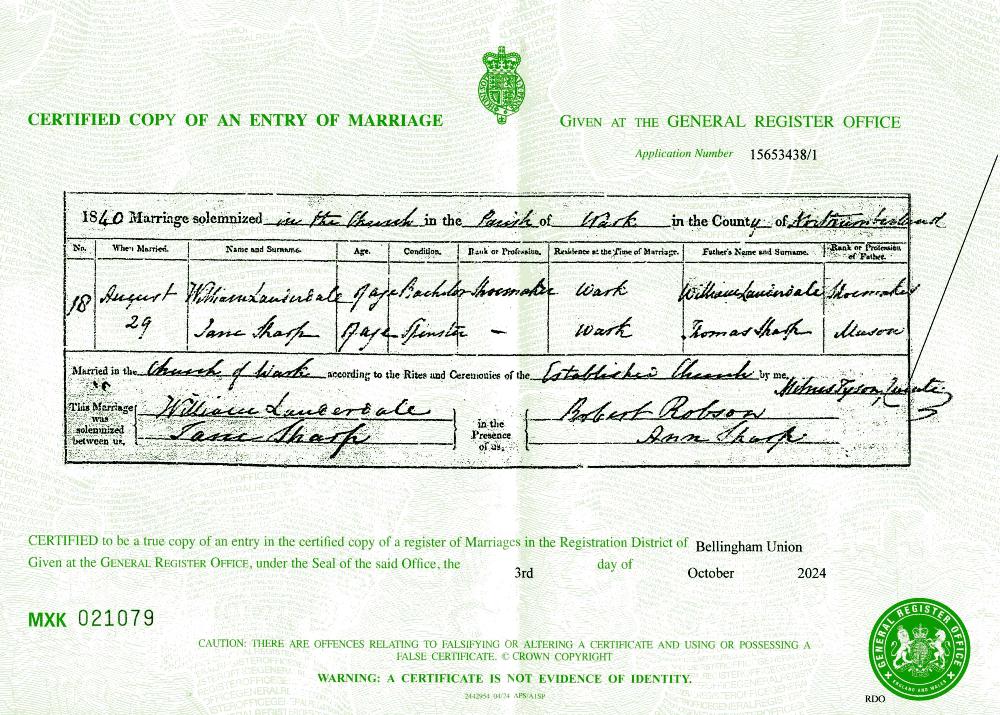 CERTIFIED COPY OF AN ENTRY OF MARRIAGE
GIVEN AT THE GENERAL REGISTER OFFICE
Application Number 15653438/1
1840 Marriage solemnized in the Church in the Parish of Wark in the County of Northumberland
No. When Married. Name and Surname. Age. Condition. Rank or Profession. Residence at the Time of Marriage. Father's Name and Surname. Rank or Profession of Father.
18 August 29 William Lauderdale Of age Bachelor Shoemaker Wark William Lauderdale Shoemaker
Jane Sharp Of age Spinster – Wark Thomas Sharp Mason
Married in the Church of Wark according to the Rites and Ceremonies of the Established Church by me,
This Marriage was solemnized between us, William Lauderdale in the Presence of us, Robert Robson
Jane Sharp Ann Sharp
CERTIFIED to be a true copy of an entry in the certified copy of a register of Marriages in the Registration District of Bellingham Union
Given at the GENERAL REGISTER OFFICE, under the Seal of the said Office, the 3rd day of October 2024
MXK 021079
CAUTION: THERE ARE OFFENCES RELATING TO FALSIFYING OR ALTERING A CERTIFICATE AND USING OR POSSESSING A
FALSE CERTIFICATE. © CROWN COPYRIGHT
WARNING: A CERTIFICATE IS NOT EVIDENCE OF IDENTITY.
GENERAL REGISTER OFFICE
ENGLAND AND WALES
RDO